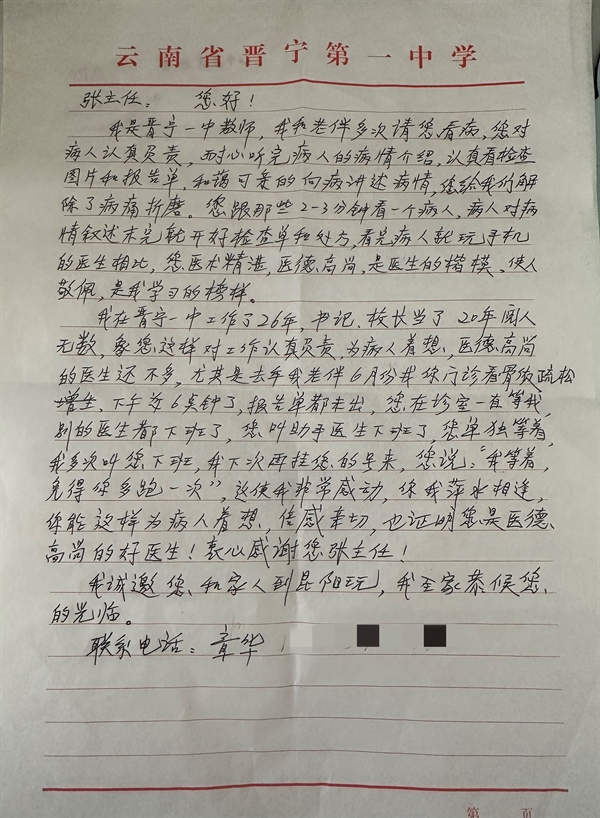 云南省晋宁第一中学
张主任：您好！
我是晋宁一中教师，我和老伴多次请您看病，您对
病人认真负责，耐心听完病人的病情介绍，认真看检查
图片和报告单，和蔼可亲的向病讲述病情，您给我们解
除了病痛折磨。您跟那些2-3分钟看一个病人，病人对病
情叙述未完就开好检查单和处方，看完病人就玩手机
的医生相比，您医术精湛，医德高尚，是医生的楷模、使人
敬佩，是我学习的榜样。
我在晋宁一中工作了26年，书记、校长当了20年阅人
无数，象您这样对工作认真负责，为病人着想、医德高尚
的医生还不多，尤其是去年我老伴6月份我你门诊看骨质疏松
增生，下午近6点钟了，报告单都未出，您在诊室一直等我，
别的医生都下班了，您叫助手医生下班了，您单独等着，
我多次叫您下班，我下次再挂您的号来，您说：“我等着，
免得你多跑一次”，这使我非常感动，你我萍水相逢，
你能这样为病人着想、倍感亲切，也证明您是医德
高尚的好医生！衷心感谢您张主任！
我诚邀您和家人到昆阳玩，我至家恭候您
的光临。
联系电话：章华
第 页